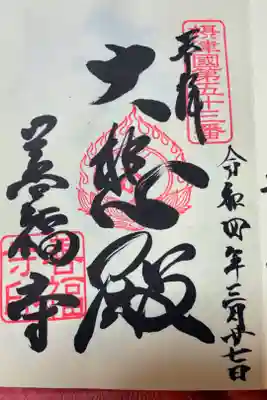 奉拝
摂津國第五十三番
令和四年三月廿七日
大悲殿
善福寺